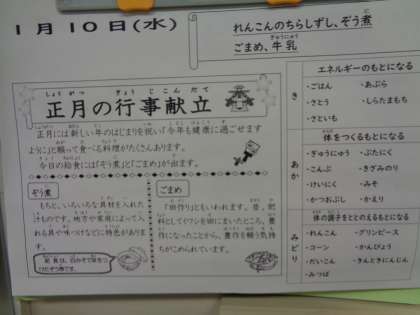 1月10日(水)
れんこんのちらしずし、ぞう煮
ごまめ、牛乳
正月の行事献立
しょうがつ ぎょうじこんだて
正月には新しい年のはじまりを祝い「今年も健康に過ごせます
ように」と願って食べる料理がたくさんあります。
今日の給食には「ぞう煮」と「ごまめ」が出ます。
ぞう煮
もちと、いろいろな具材を入れた
汁ものです。地方や家庭によって入
れる具や味つけなどに特色がありま
す。
ごまめ
「田作り」ともいわれます。昔、肥
料としてイワシを田にまいたところ、豊
作になったことから、豊作を願う気持
ちがこめられています。
エネルギーのもとになる
き
・ごはん ・あぶら
・さとう ・しらたまもち
・さといも
体をつくるもとになる
あか
・ぎゅうにゅう ・ぶたにく
・こんぶ ・きざみのり
・けいにく ・みそ
・かつおぶし ・かえり
体の調子をととのえるもとになる
みどり
・れんこん ・グリンピース
・コーン ・かんぴょう
・だいこん ・きんときにんじん
・みつば